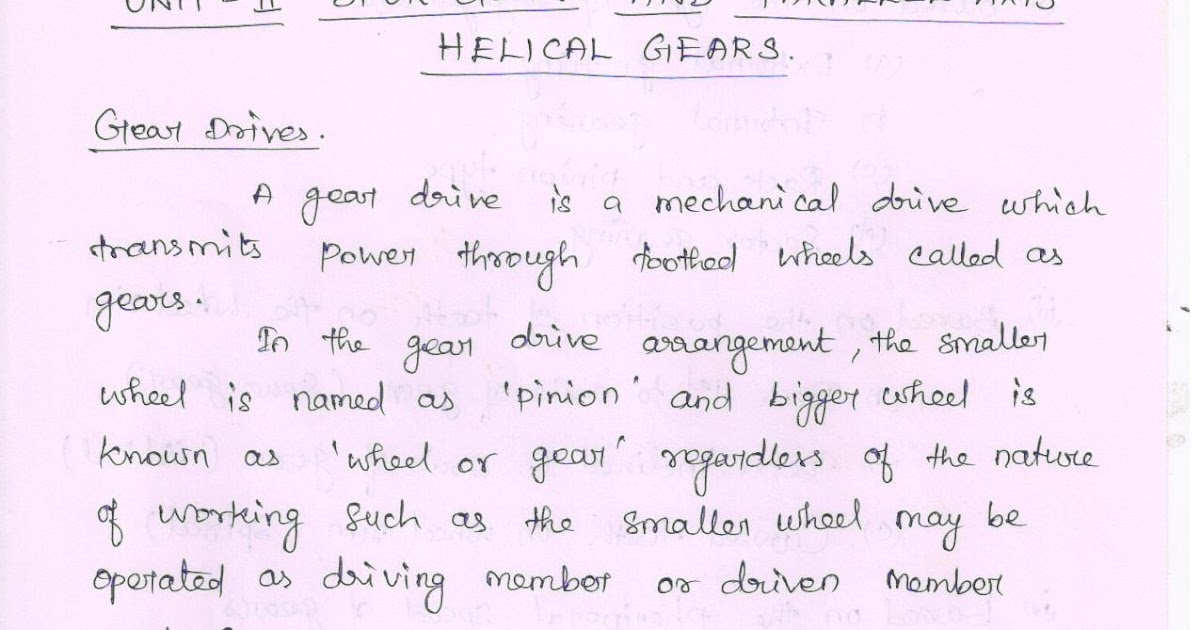 UNIT - II SPUR GEARS AND PARALLEL AXIS
HELICAL GEARS.
Gear Drives.
A gear drive is a mechanical drive which
transmits power through toothed wheels called as
gears.
In the gear drive arrangement, the smaller
wheel is named as 'pinion' and bigger wheel is
known as 'wheel or gear' regardless of the nature
of working such as the smaller wheel may be
operated as driving member or driven member